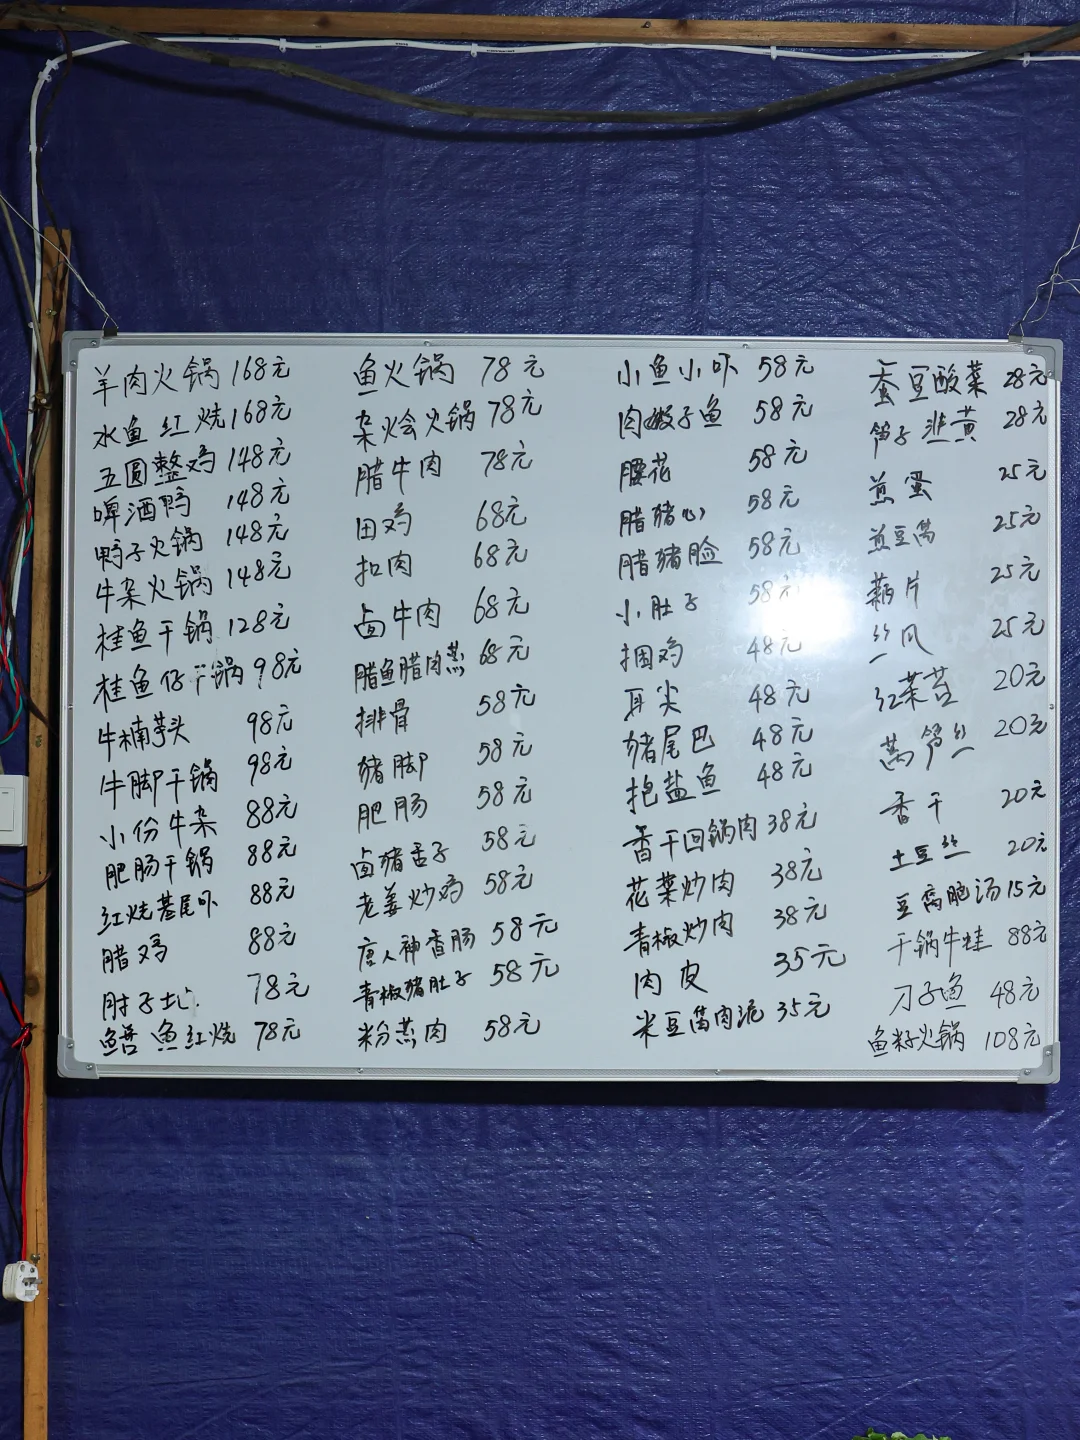 羊肉火锅 168元
水鱼红烧 168元
五圆整鸡 148元
啤酒鸭 148元
鸭子火锅 148元
牛杂火锅 148元
桂鱼干锅 128元
桂鱼仔干锅 98元
牛楠芋头 98元
牛脚干锅 98元
小份牛杂 88元
肥肠干锅 88元
红烧基尾虾 88元
腊鸡 88元
肘子 78元
鳝鱼红烧 78元
鱼火锅 78元
杂烩火锅 78元
腊牛肉 78元
田鸡 68元
扣肉 68元
卤牛肉 68元
腊鱼腊肉蒸 68元
排骨 58元
猪脚 58元
肥肠 58元
卤猪舌子 58元
老姜炒鸡 58元
唐人神香肠 58元
青椒猪肚子 58元
粉蒸肉 58元
小鱼小虾 58元
肉嫩子鱼 58元
腰花 58元
腊猪心 58元
腊猪脸 58元
小肚子 58元
捆鸡 48元
耳尖 48元
猪尾巴 48元
抱盐鱼 48元
香干回锅肉 38元
花菜炒肉 38元
青椒炒肉 38元
肉皮 35元
米豆腐肉泥 35元
蚕豆酸菜 28元
笋子韭黄 28元
煎蛋 25元
煎豆腐 25元
藕片 25元
丝瓜 25元
红菜苔 20元
莴笋丝 20元
香干 20元
土豆丝 20元
豆腐脑汤 15元
干锅牛蛙 88元
刁子鱼 48元
鱼籽火锅 108元